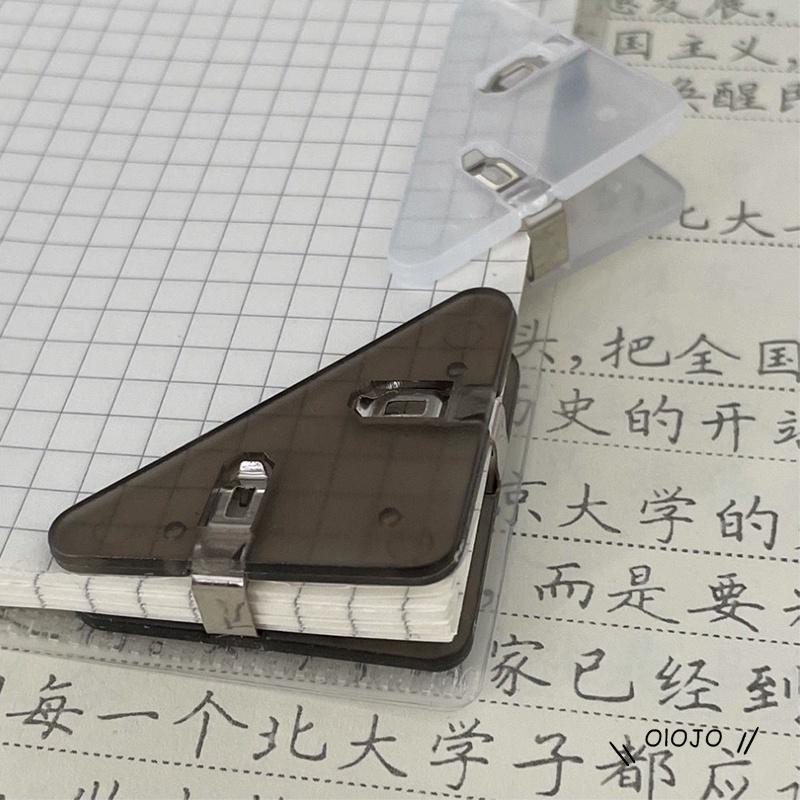 想发展,
国主义,
唤醒民
北大
头,把全国
历史的开
京大学的
,而是要
家已经到
每一个北大学子都应
\\ OIOJO //